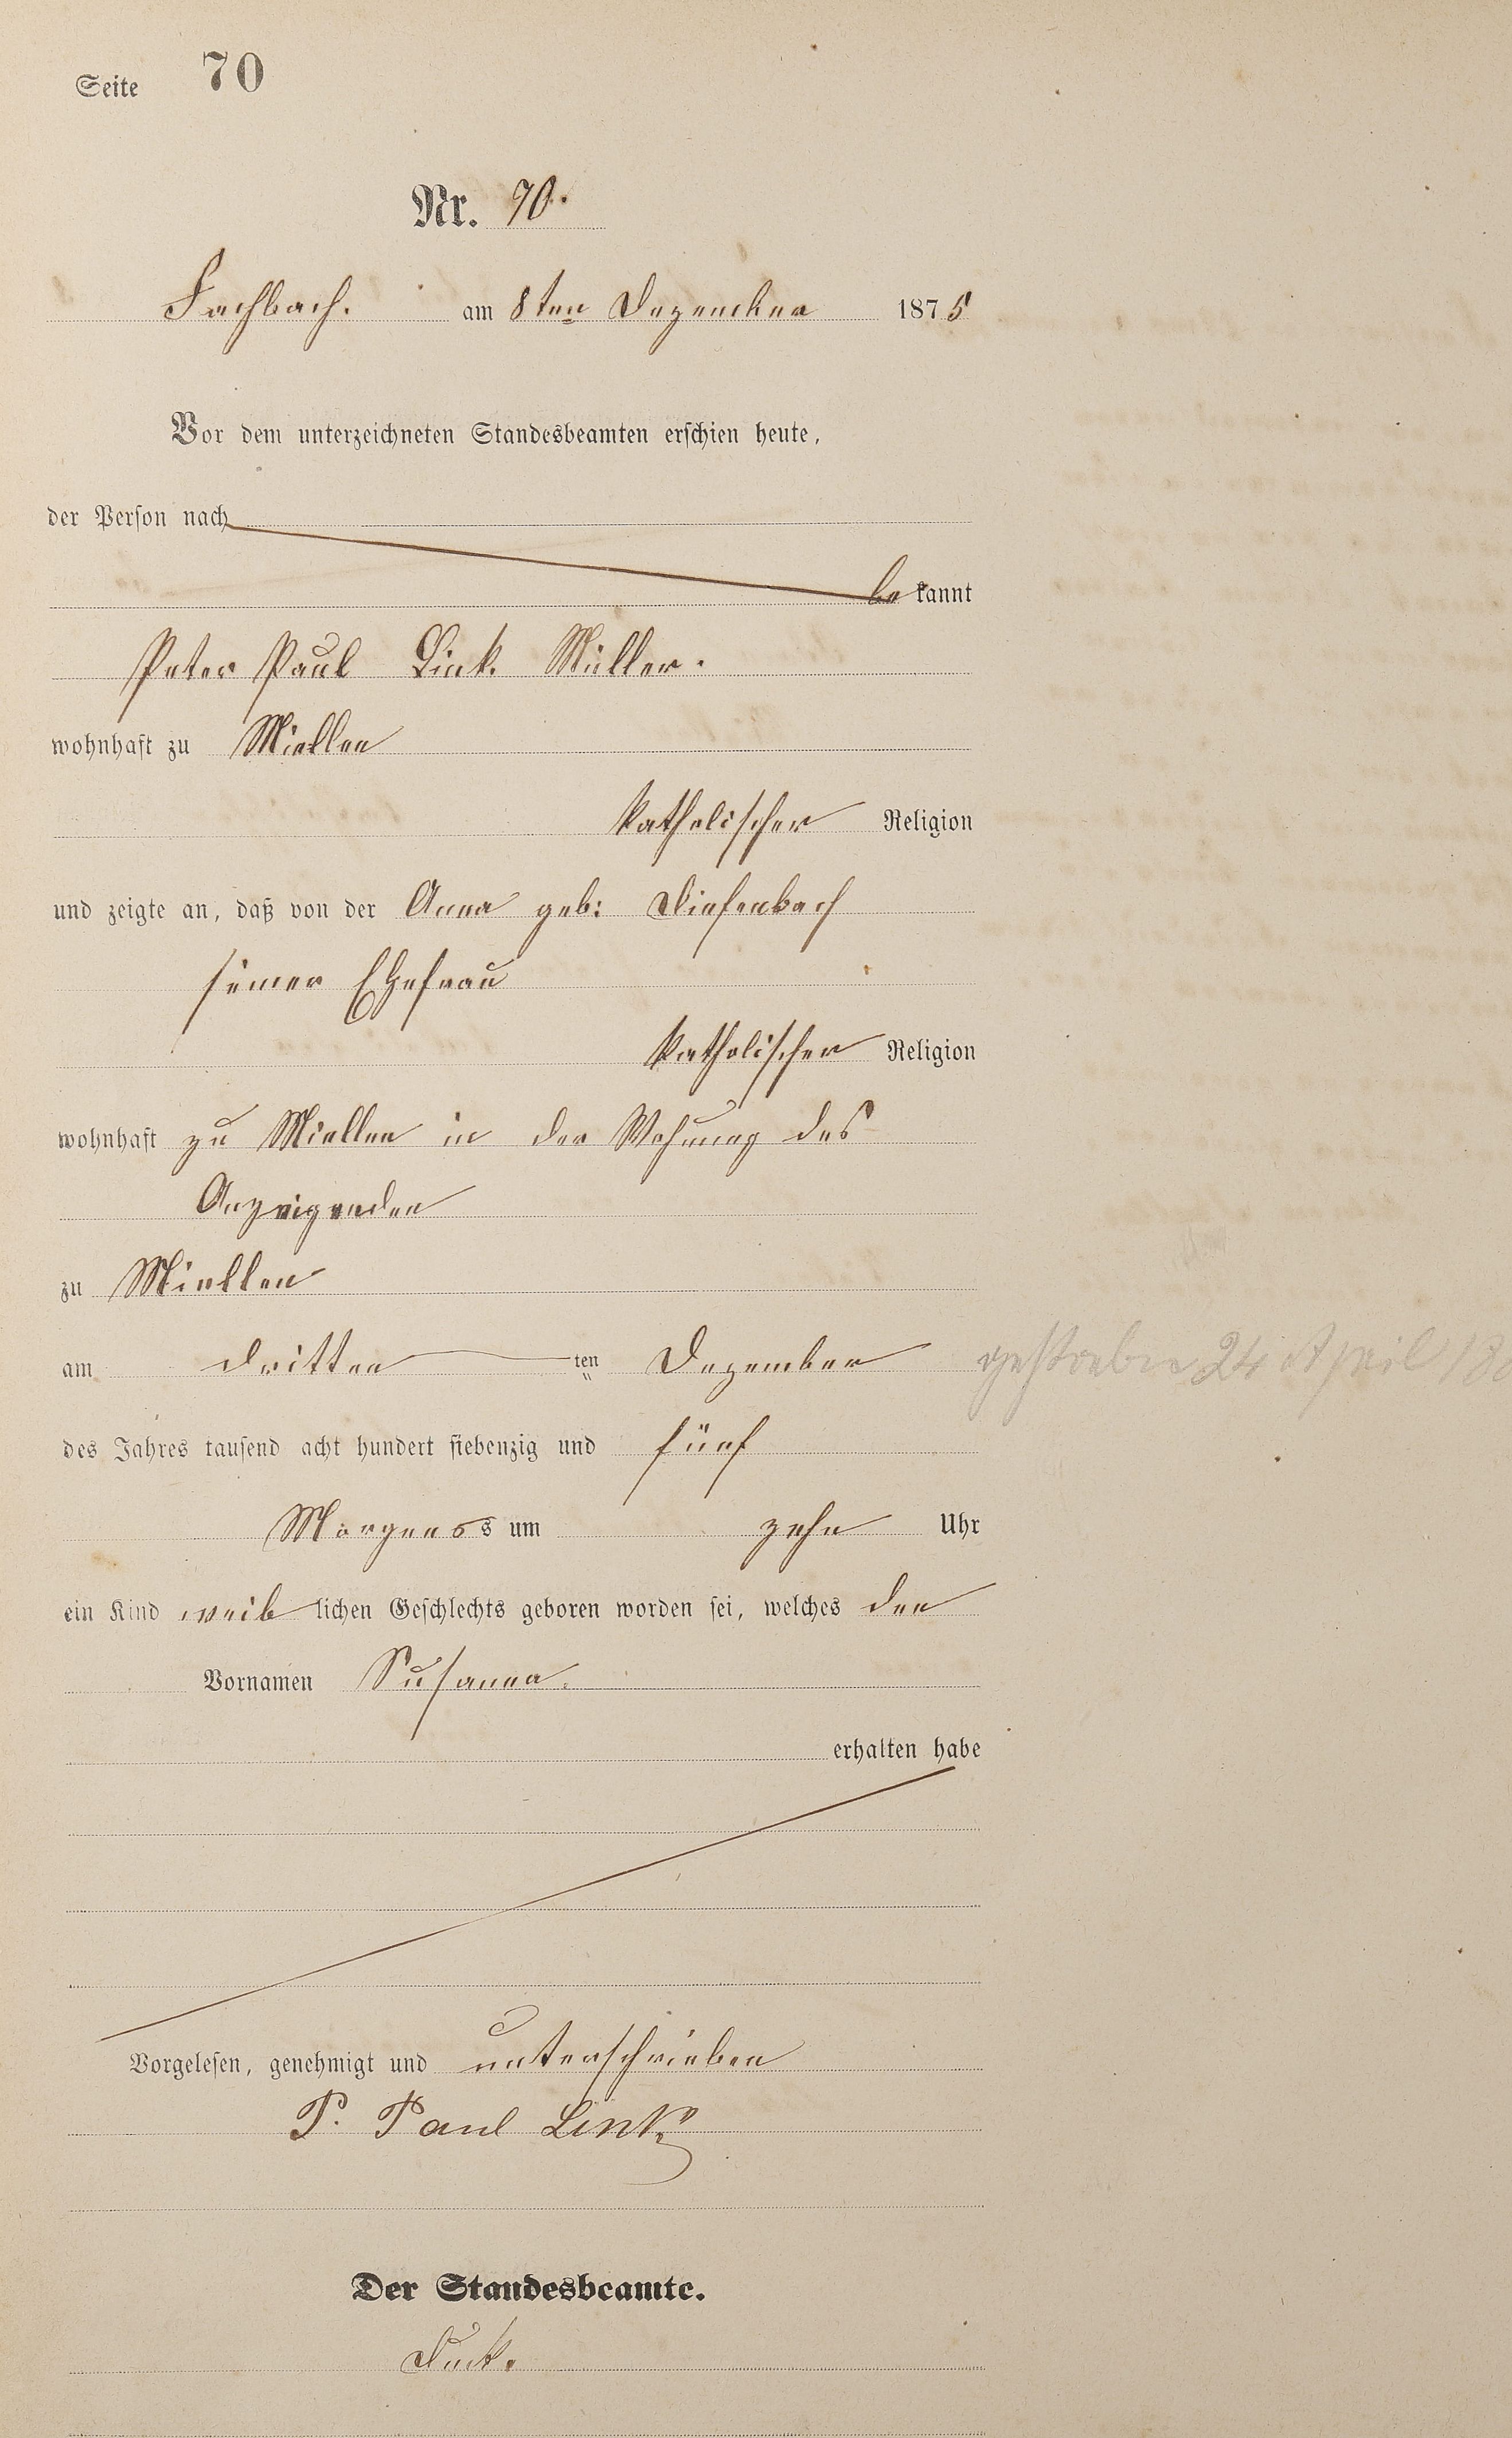 Seite 70
Nr. 70.
Fachbach. am 8ten Dezember 1875
Vor dem unterzeichneten Standesbeamten erschien heute,
der Person nach
bekannt
Peter Paul Link. Müller.
wohnhaft zu Miellen
katholischer Religion
und zeigte an, daß von der Anna geb: Diefenbach
seiner Ehefrau
katholischer Religion
wohnhaft zu Miellen in der Wohnung des
Anzeigenden
zu Miellen
am dritten ten Dezember gestorben 24 April
des Jahres tausend acht hundert siebenzig und fünf
Morgens um zehn Uhr
ein Kind weiblichen Geschlechts geboren worden sei, welches den
Vornamen Susanna.
erhalten habe
Vorgelesen, genehmigt und unterschrieben
P. Paul Link
Der Standesbeamte.